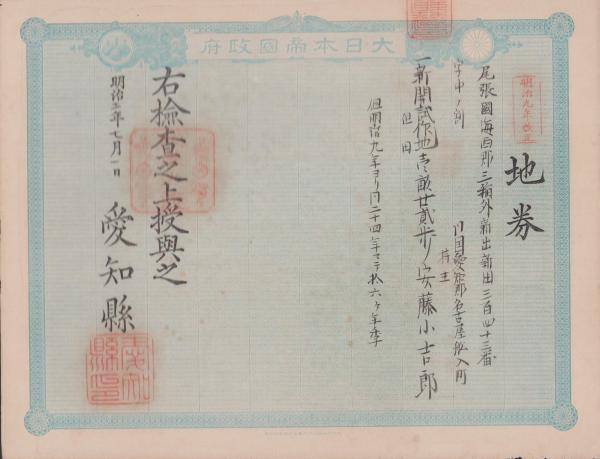 大日本帝國政府
明治九年改正
地券
尾張國海西郡三稲外新出新田三百四十三番
字中ノ割
一新開試作地壱畝廿貳歩
但田
同国愛知郡名古屋船入町
持主
安藤小吉郎
但明治九年ヨリ同二十四年マテ拾六ヶ年季
右検査之上授與之
明治 年七月一日
愛知縣
愛知縣印